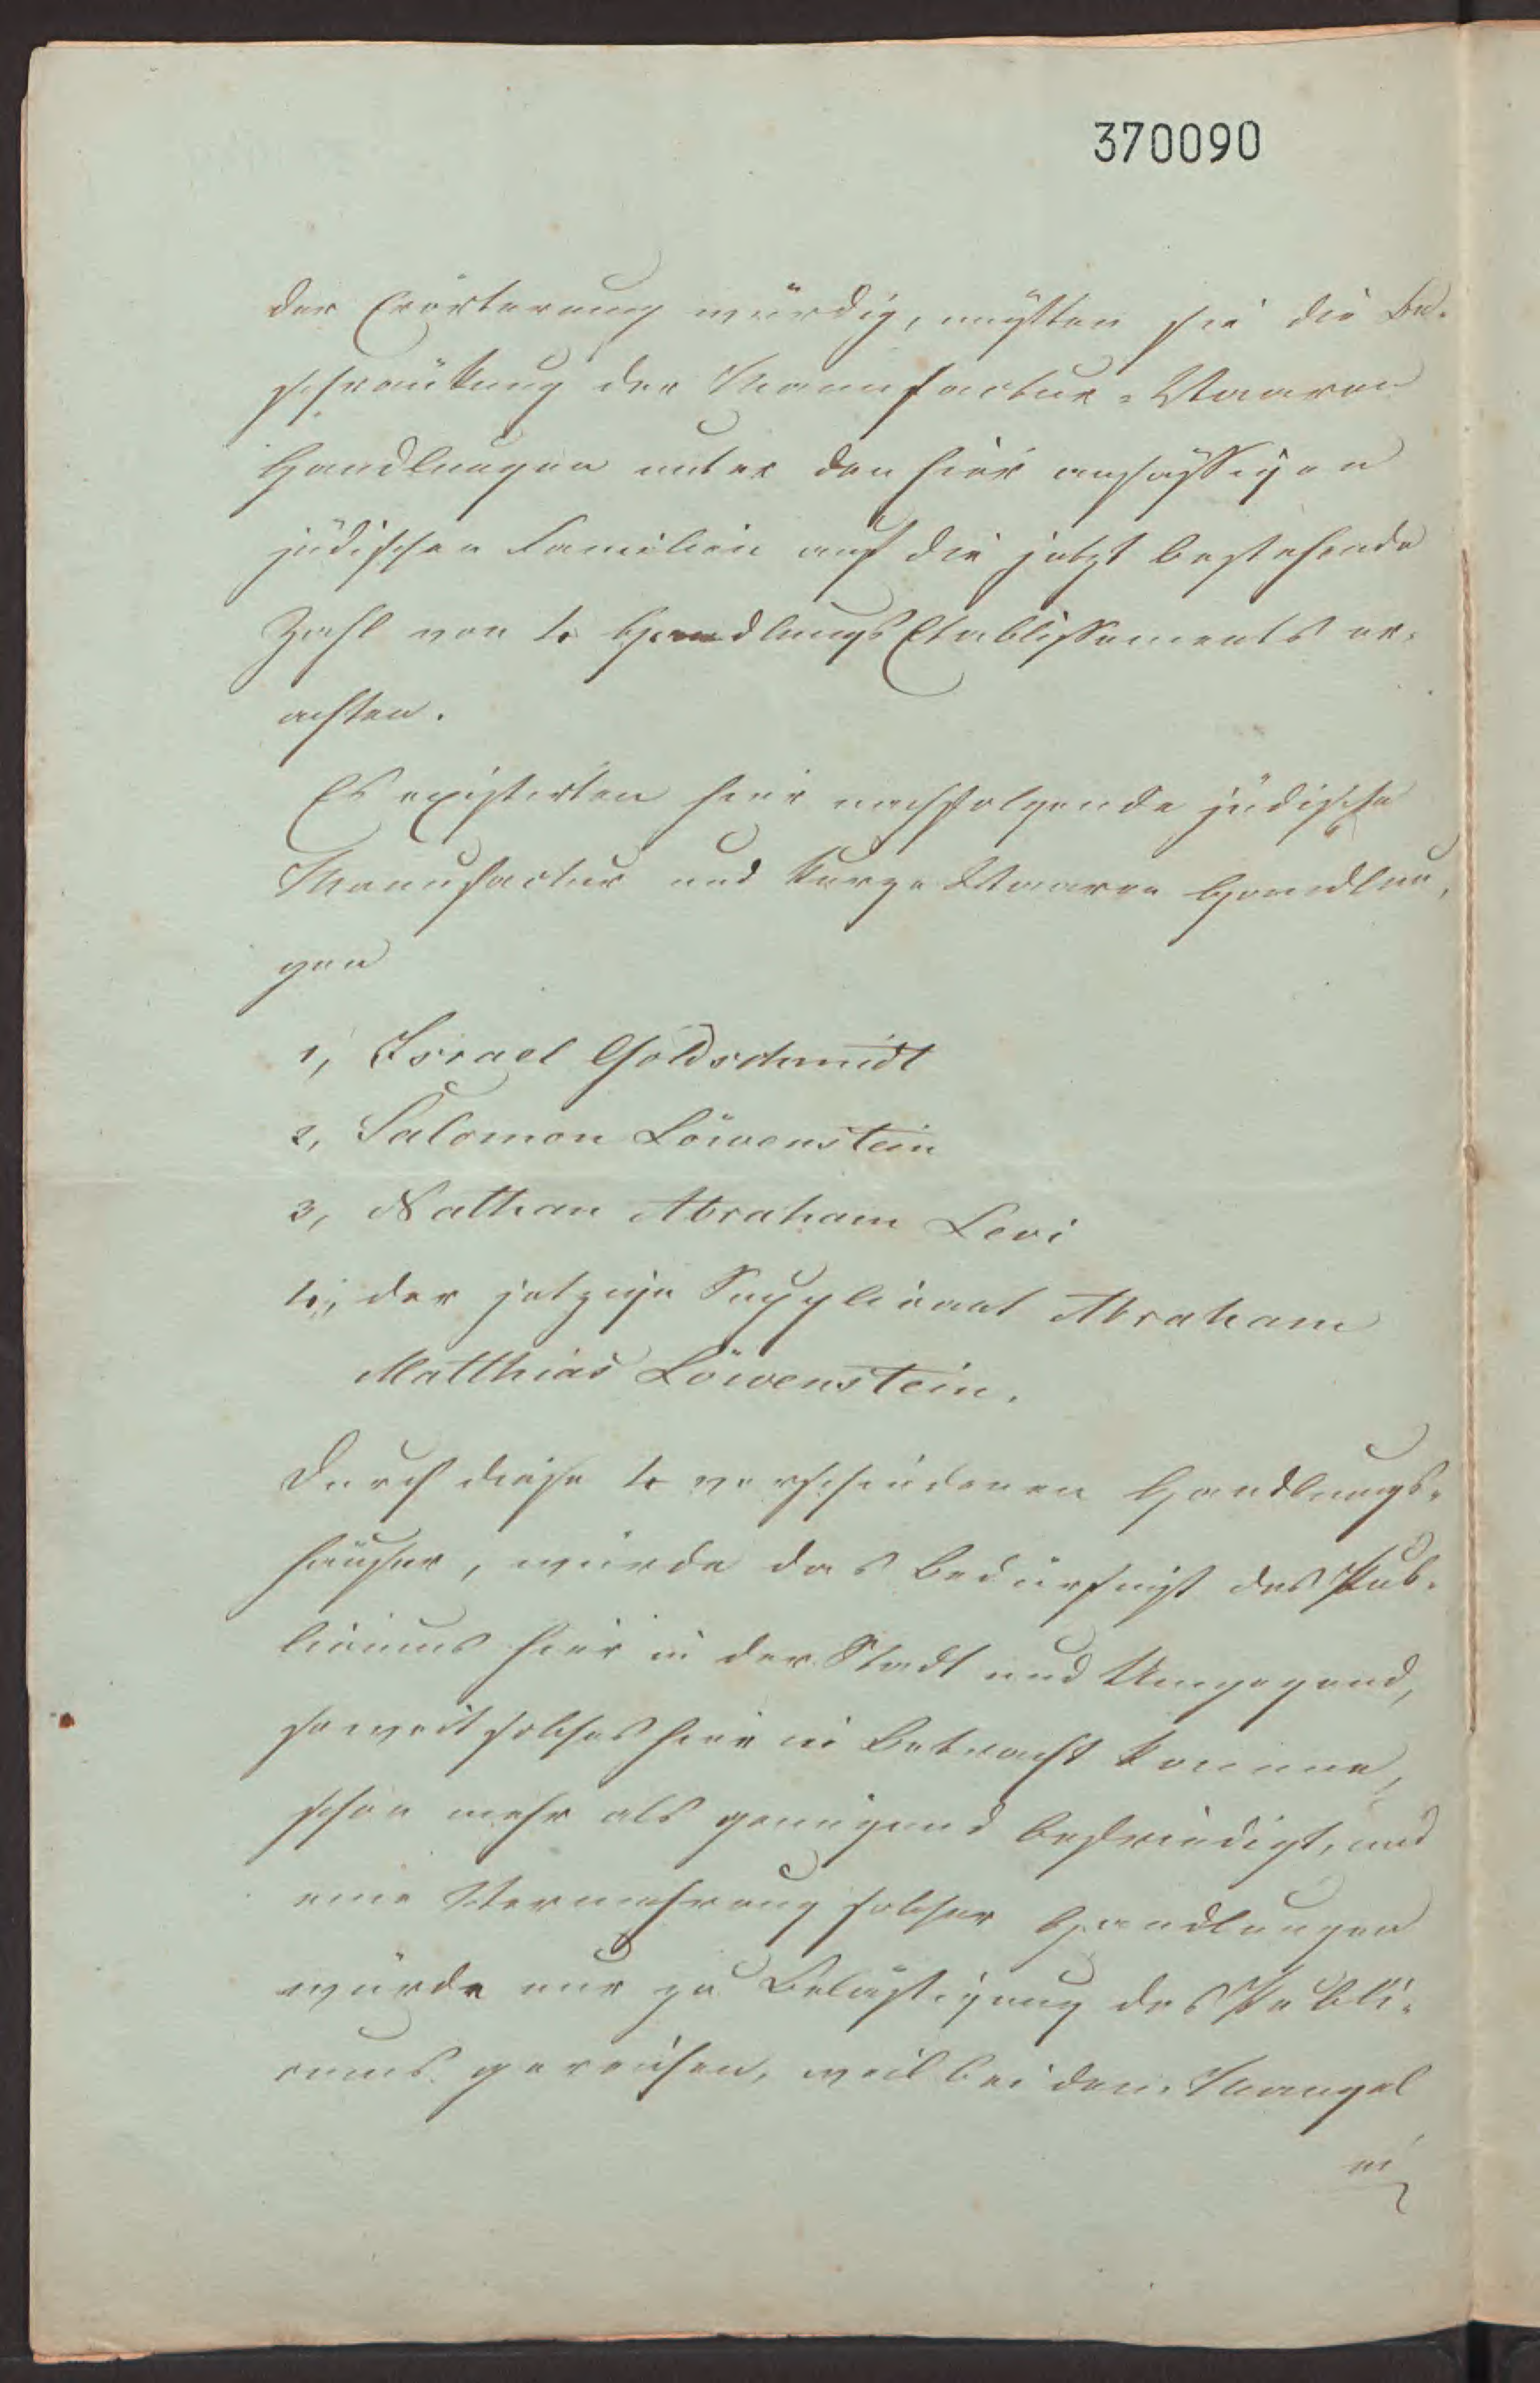 370090
der Erörterung würdig, müßten sie die Be-
schränkung der Manufactur-Waaren
Handlungen unter den hier ansässigen
jüdischen Familien auf die jetzt bestehende
Zahl von 4 Handlungs Etablissements er-
achten.
Es existirten hier nachfolgende jüdische
Manufactur und Kurze Waaren Handlun-
gen
1, Israel Goldschmidt
2, Salomon Löwenstein
3, Nathan Abraham Levi
4, der jetzige Supplicant Abraham
Matthias Löwenstein.
Durch diese 4 verschiedenen Handlungs-
häuser, würde das Bedürfniß des Pub-
licums hier in der Stadt und Umgegend,
soweit solches hier in Betracht komme,
schon mehr als genügend befriedigt, und
eine Vermehrung solcher Handlungen
würde nur zu Belästigung des Publi-
cums gereichen, weil bei dem Mangel
in